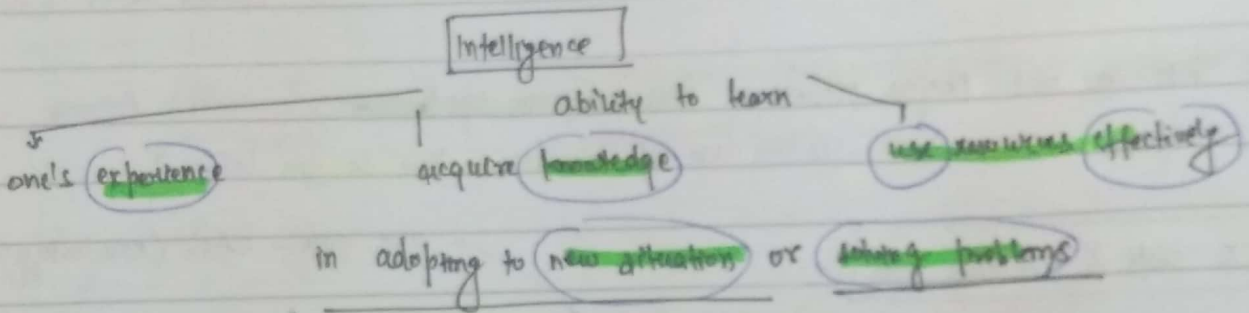 Intelligence
ability to learn
one's experience acquire knowledge use resources effectively
in adopting to new situation or solving problems